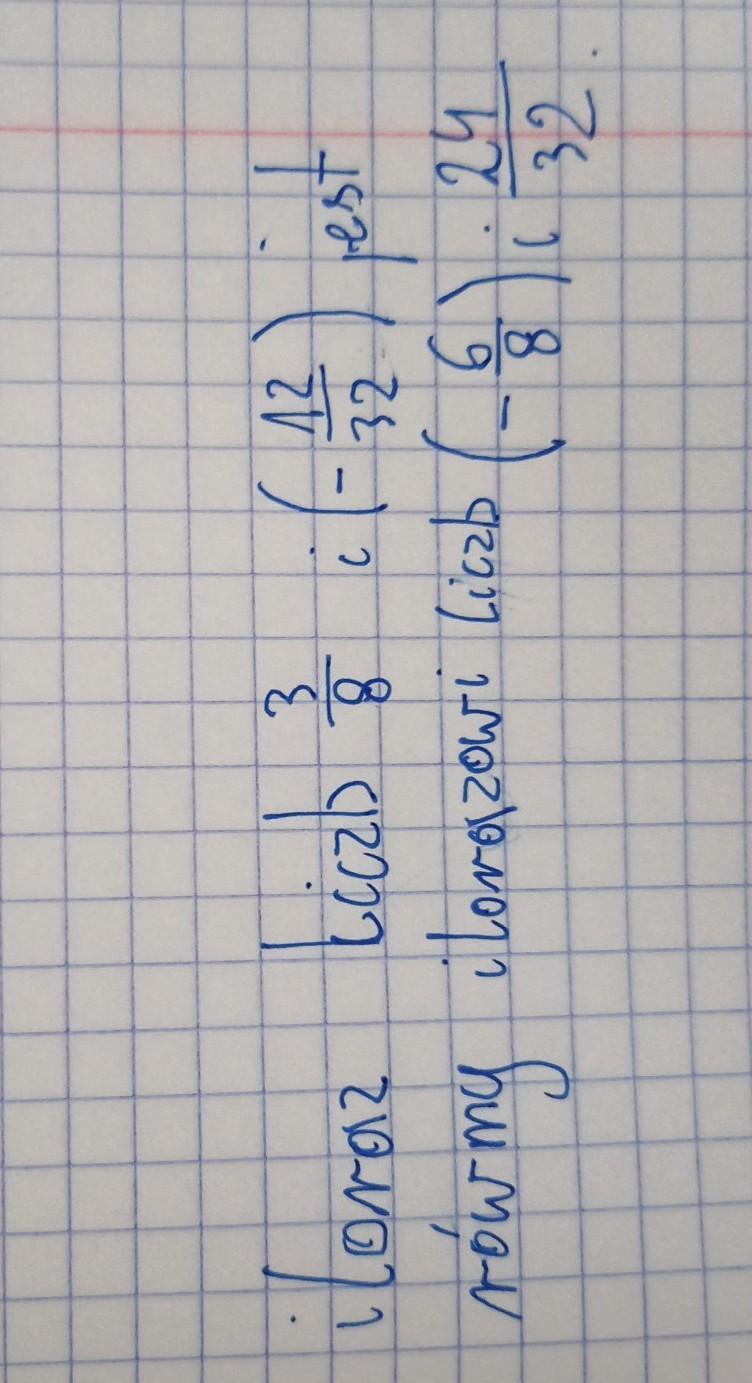 iloraz liczb 3/8 i (-12/32) jest
równy ilorazowi liczb (-6/8) i 24/32.